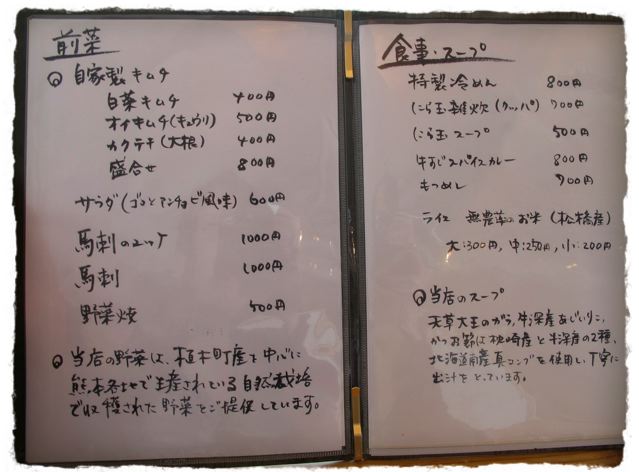 前菜
◎ 自家製キムチ
白菜キムチ 400円
オイキムチ(キュウリ) 500円
カクテキ(大根) 400円
盛合せ 800円
サラダ(ゴマとアンチョビ風味) 600円
馬刺のユッケ 1000円
馬刺 1000円
野菜焼 500円
◎ 当店の野菜は、植木町産を中心に
熊本各地で生産されている自然栽培
で収穫された野菜をご提供しています。
食事・スープ
特製冷めん 800円
にら玉雑炊(クッパ) 700円
にら玉スープ 500円
牛すじスパイスカレー 800円
もつめし 700円
ライス 無農薬のお米(松橋産)
大:300円, 中:250円, 小:200円
◎ 当店のスープ
天草大王のガラ, 牛深産あじいりこ,
かつお節は枕崎産と牛深産の2種,
北海道南産真コンブを使用し、丁寧に
出汁をとっています。